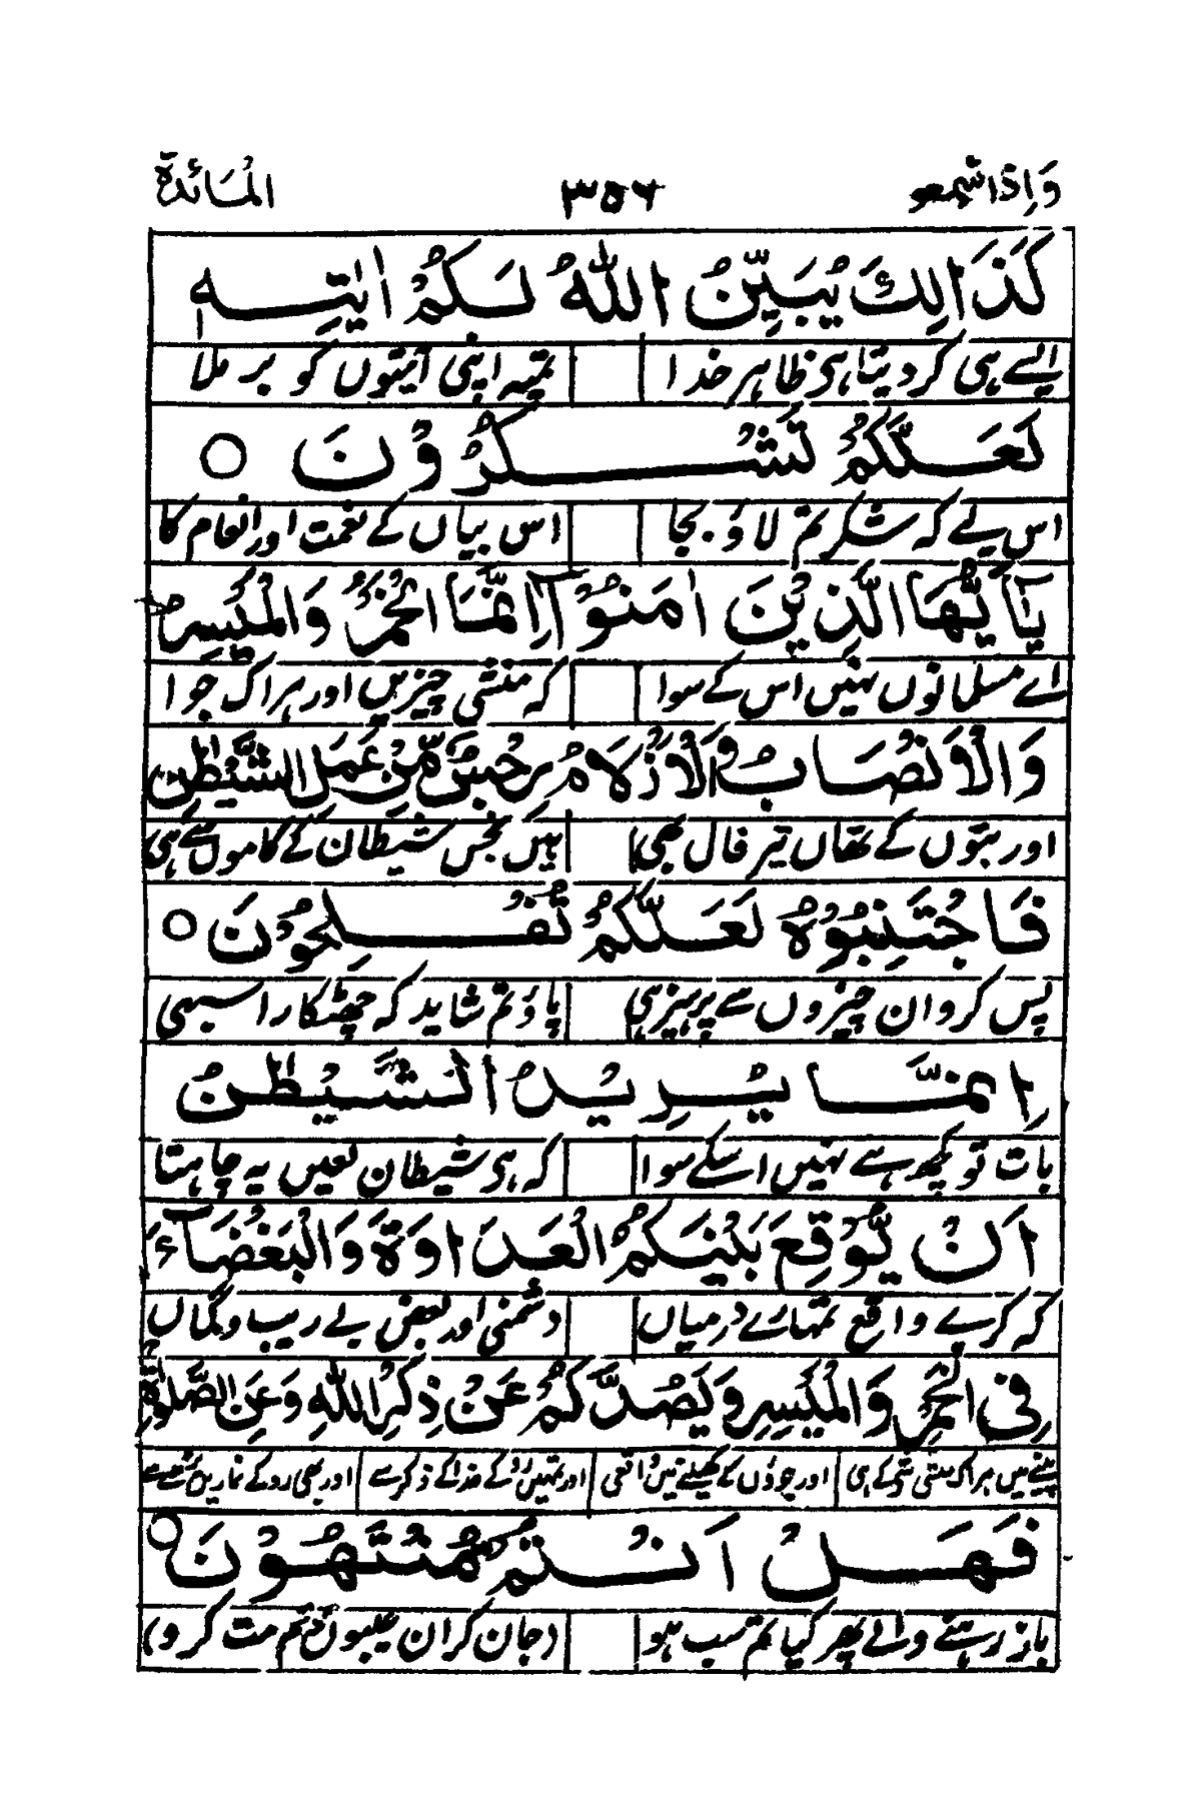 وَاِذَاسَمِعُو ۳۵۶ الْمَائِدَة
كَذَالِكَ يُبَيِّنُ اللّٰهُ لَكُمْ اٰيٰتِهٖ
ایسے ہی کر دیتا ہی ظاہر خدا تمپہ اپنی آیتوں کو بر ملا
لَعَلَّكُمْ تَشْكُرُوْنَ ○
اس لیے کہ شکر تم لاؤ بجا اس بیاں کے نعمت اور انعام کا
يٰٓاَيُّهَا الَّذِيْنَ اٰمَنُوْٓا اِنَّمَا الْخَمْرُ وَالْمَيْسِرُ
اے مسلمانوں نہیں اس کے سوا کہ منشی چیزیں اور ہر اک جوا
وَالْاَنْصَابُ وَالْاَزْلَامُ رِجْسٌ مِّنْ عَمَلِ الشَّيْطٰنِ
اور بتوں کے تھاں تیر فال بھی) ہیں نجس شیطان کے کاموں سے ہی
فَاجْتَنِبُوْهُ لَعَلَّكُمْ تُفْلِحُوْنَ ○
پس کرو ان چیزوں سے پرہیز ہی پاؤ تم شاید کہ چھٹکارا سبھی
اِنَّمَا يُرِيْدُ الشَّيْطٰنُ
بات تو کچھ ہے نہیں اسکے سوا کہ ہی شیطان لعیں یہ چاہتا
اَنْ يُّوْقِعَ بَيْنَكُمُ الْعَدَاوَةَ وَالْبَغْضَآءَ
کہ کرے واقع تمہارے درمیاں دشمنی اور بعض بے ریب و گماں
فِى الْخَمْرِ وَالْمَيْسِرِ وَيَصُدَّكُمْ عَنْ ذِكْرِ اللّٰهِ وَعَنِ الصَّلٰوةِ
پینے میں ہر اک منشی شے کے ہی اور جوؤں کے کھیلنے میں واقعی اور تمہیں روکے خدا کے ذکر سے اور بھی روکے نماریں
فَهَلْ اَنْتُمْ مُّنْتَهُوْنَ ○
باز رہنے والے پھر کیا تم سب ہو (جان کر ان عیبوں تم مت کرو)